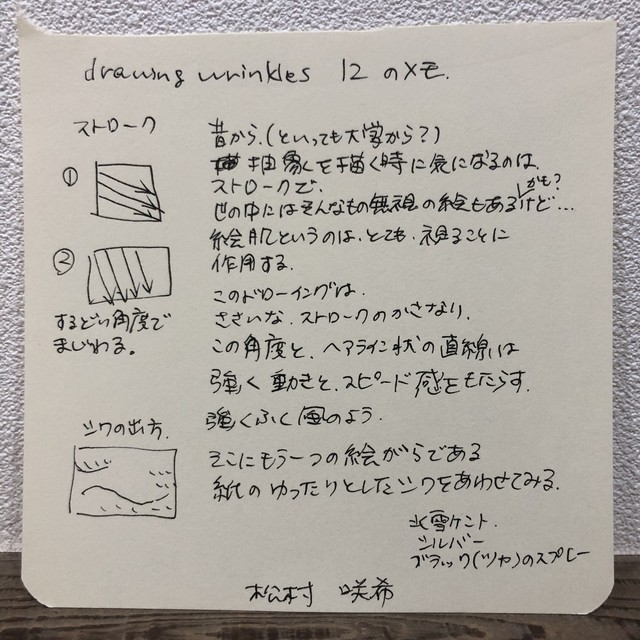 drawing wrinkles 12 のメモ.
ストローク
①
②
するどい角度で
まじわる。
シワの出方.
昔から.(といっても大学から?)
抽象を描く時に気になるのは、
ストロークで、
世の中にはそんなもの無視の絵もあるけど...
かも?
絵肌というのは、とても、視ることに
作用する.
このドローイングは、
ささいな、ストロークのかさなり.
この角度と、ヘアライン状の直線は
強く動きと、スピード感をもたらす.
強くふく風のよう.
そこにもう一つの絵がらである
紙のゆったりとしたシワをあわせてみる.
氷雪ケント.
シルバー
ブラック(ツヤ)のスプレー
松村 咲希